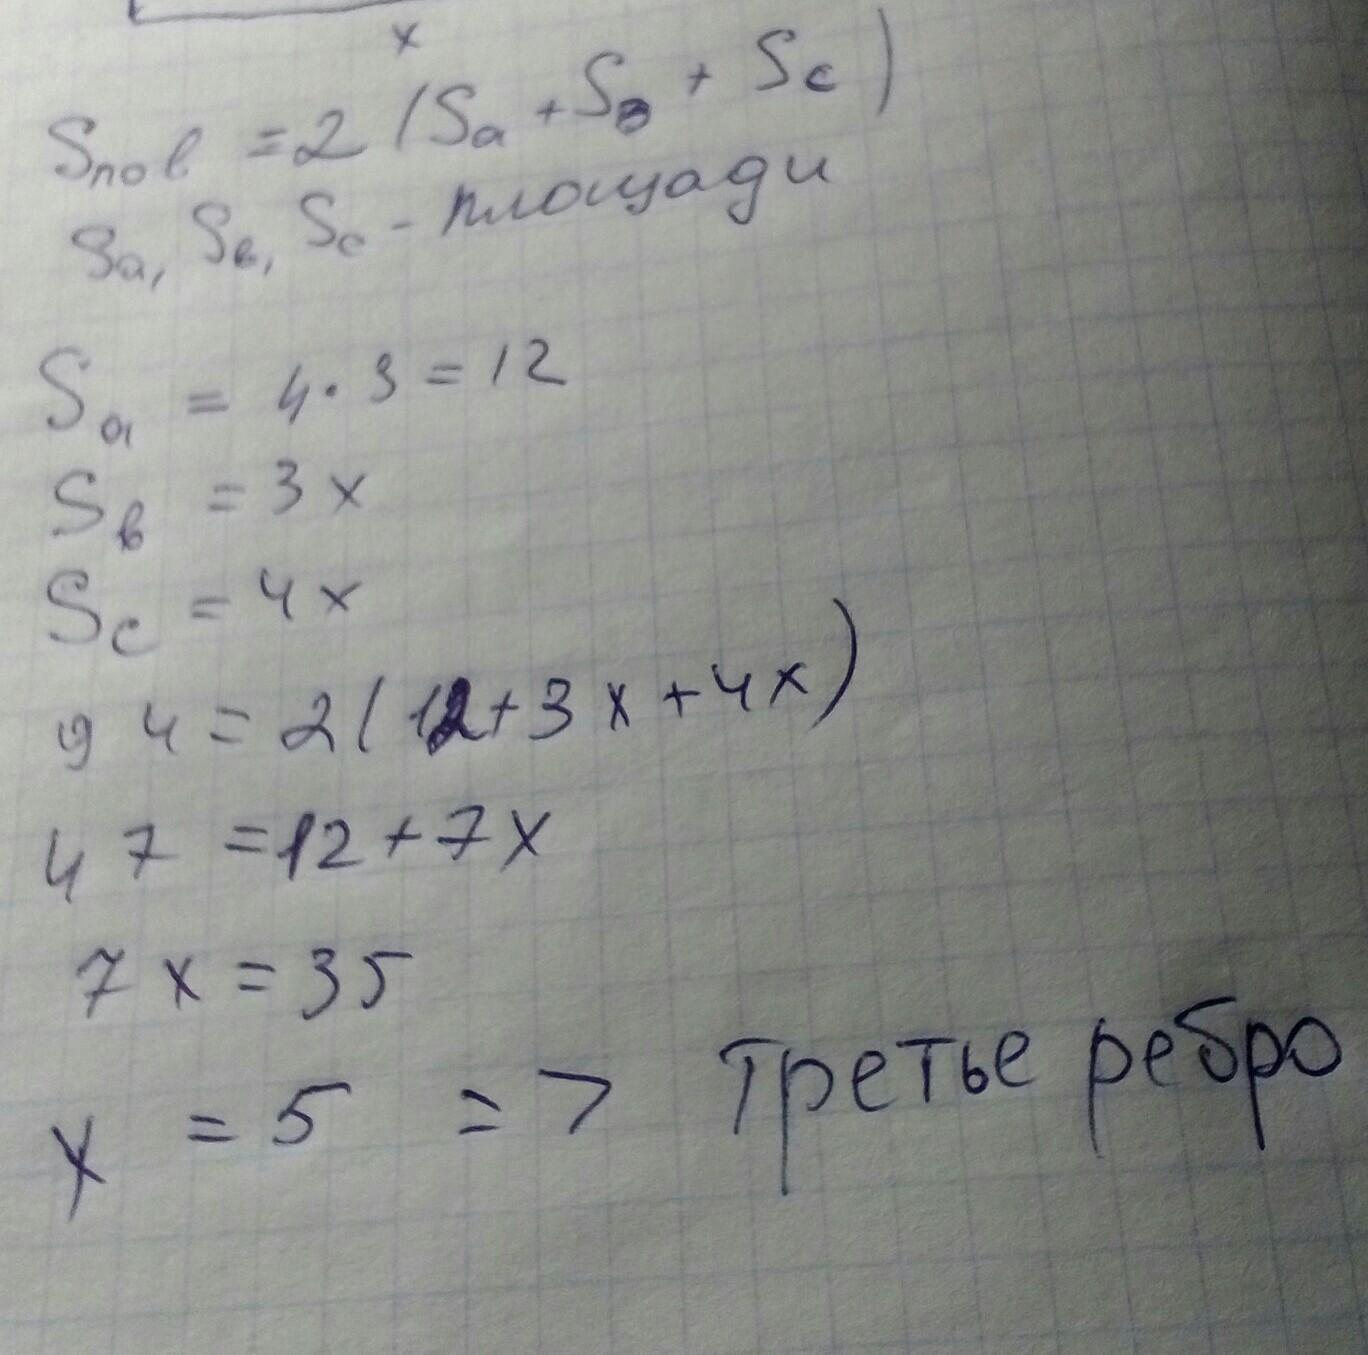 x
Sпов = 2 (Sa + Sв + Sc)
Sa, Sв, Sc - площади
Sa = 4 · 3 = 12
Sв = 3x
Sc = 4x
94 = 2(12+3x+4x)
47 = 12+7x
7x = 35
x = 5 => Третье ребро